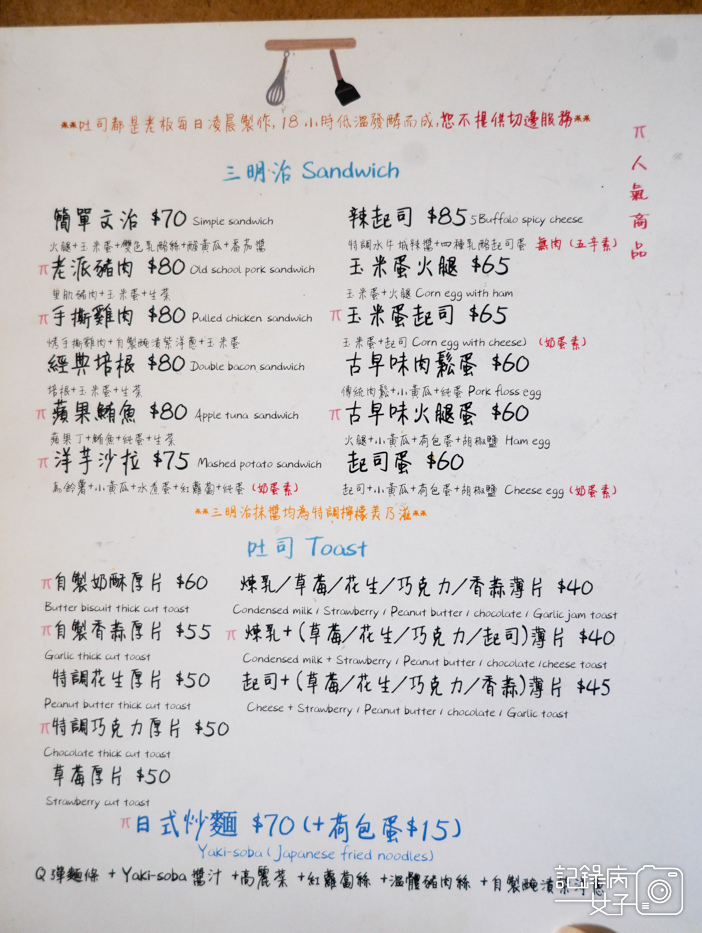 **吐司都是老板每日凌晨製作,18小時低溫發酵而成,恕不提供切邊服務**
π人氣商品
三明治 Sandwich
簡單文治 $70 Simple sandwich
火腿+玉米蛋+雙色乳酪絲+酸黃瓜+番茄醬
π老派豬肉 $80 Old school pork sandwich
里肌豬肉+玉米蛋+生菜
π手撕雞肉 $80 Pulled chicken sandwich
烤手撕雞肉+自製醃漬紫洋蔥+玉米蛋
經典培根 $80 Double bacon sandwich
培根+玉米蛋+生菜
π蘋果鮪魚 $80 Apple tuna sandwich
蘋果丁+鮪魚+純蛋+生菜
π洋芋沙拉 $75 Mashed potato sandwich
馬鈴薯+小黃瓜+水煮蛋+紅蘿蔔+純蛋 (奶蛋素)
辣起司 $85 5Buffalo spicy cheese
特調水牛城辣醬+四種乳酪起司蛋 無肉 (五辛素)
玉米蛋火腿 $65
玉米蛋+火腿 Corn egg with ham
π玉米蛋起司 $65
玉米蛋+起司 Corn egg with cheese) (奶蛋素)
古早味肉鬆蛋 $60
傳統肉鬆+小黃瓜+純蛋 Pork floss egg
π古早味火腿蛋 $60
火腿+小黃瓜+荷包蛋+胡椒鹽 Ham egg
起司蛋 $60
起司+小黃瓜+荷包蛋+胡椒鹽 Cheese egg (奶蛋素)
**三明治抹醬均為特調檸檬美乃滋**
吐司 Toast
π自製奶酥厚片 $60
Butter biscuit thick cut toast
π自製香蒜厚片 $55
Garlic thick cut toast
特調花生厚片 $50
Peanut butter thick cut toast
π特調巧克力厚片 $50
Chocolate thick cut toast
草莓厚片 $50
Strawberry cut toast
煉乳/草莓/花生/巧克力/香蒜薄片 $40
Condensed milk / Strawberry / Peanut butter / chocolate / Garlic jam toast
π煉乳+(草莓/花生/巧克力/起司)薄片 $40
Condensed milk + Strawberry / Peanut butter / chocolate /cheese toast
起司+(草莓/花生/巧克力/香蒜)薄片 $45
Cheese + Strawberry / Peanut butter / chocolate / Garlic toast
π日式炒麵 $70 (+荷包蛋$15)
Yaki-soba ( Japanese fried noodles)
Q彈麵條 + Yaki-soba醬汁 +高麗菜 +紅蘿蔔絲 +溫體豬肉絲 +自製醃漬紫洋蔥
記錄病女子